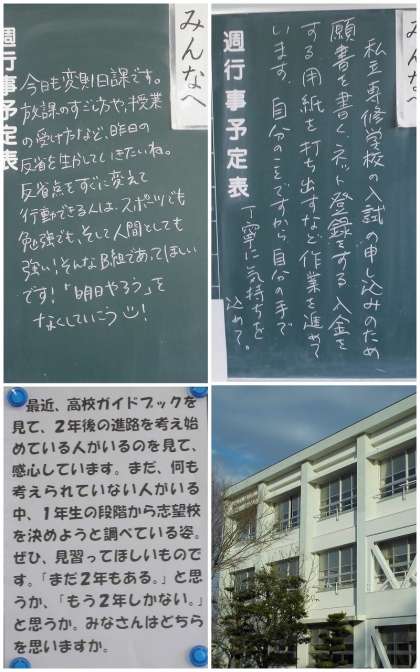 みんなへ
週行事予定表
今日も変則日課です。
放課のすごし方や、授業
の受け方など、昨日の
反省を生かしていきたいね。
反省点をすぐに変えて
行動できる人は、スポーツでも
勉強でも、そして人間としても
強い！そんなB組であってほしい
です！「明日やろう」を
なくしていこう！
みんなへ
私立、専修学校の入試の申し込みのため、
願書を書く、ネット登録をする、入金を
する、用紙を打ち出すなど作業を進めて
います。自分のことですから、自分の手で
丁寧に気持ちを
込めて。
週行事予定表
最近、高校ガイドブックを
見て、２年後の進路を考え始
めている人がいるのを見て、
感心しています。まだ、何も
考えられていない人がいる
中、１年生の段階から志望校
を決めようと調べている姿。
ぜひ、見習ってほしいもので
す。「まだ２年もある。」と思
うか、「もう２年しかない。」
と思うか。みなさんはどちら
を思いますか。